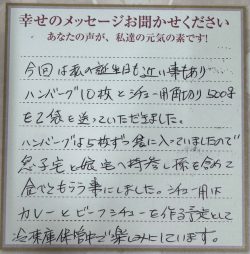 幸せのメッセージお聞かせください
あなたの声が、私達の元気の素です!
今回は私の誕生日も近い事もあり
ハンバーグ10枚とシチュー用角切り500g
を2袋を送っていただきました。
ハンバーグは5枚ずつ袋に入っていましたので
息子宅と娘宅へ持参し孫を含めて
食べてもらう事にしました。シチュー用は
カレーとビーフシチューを作る予定として
冷凍庫保管中で楽しみにしています。